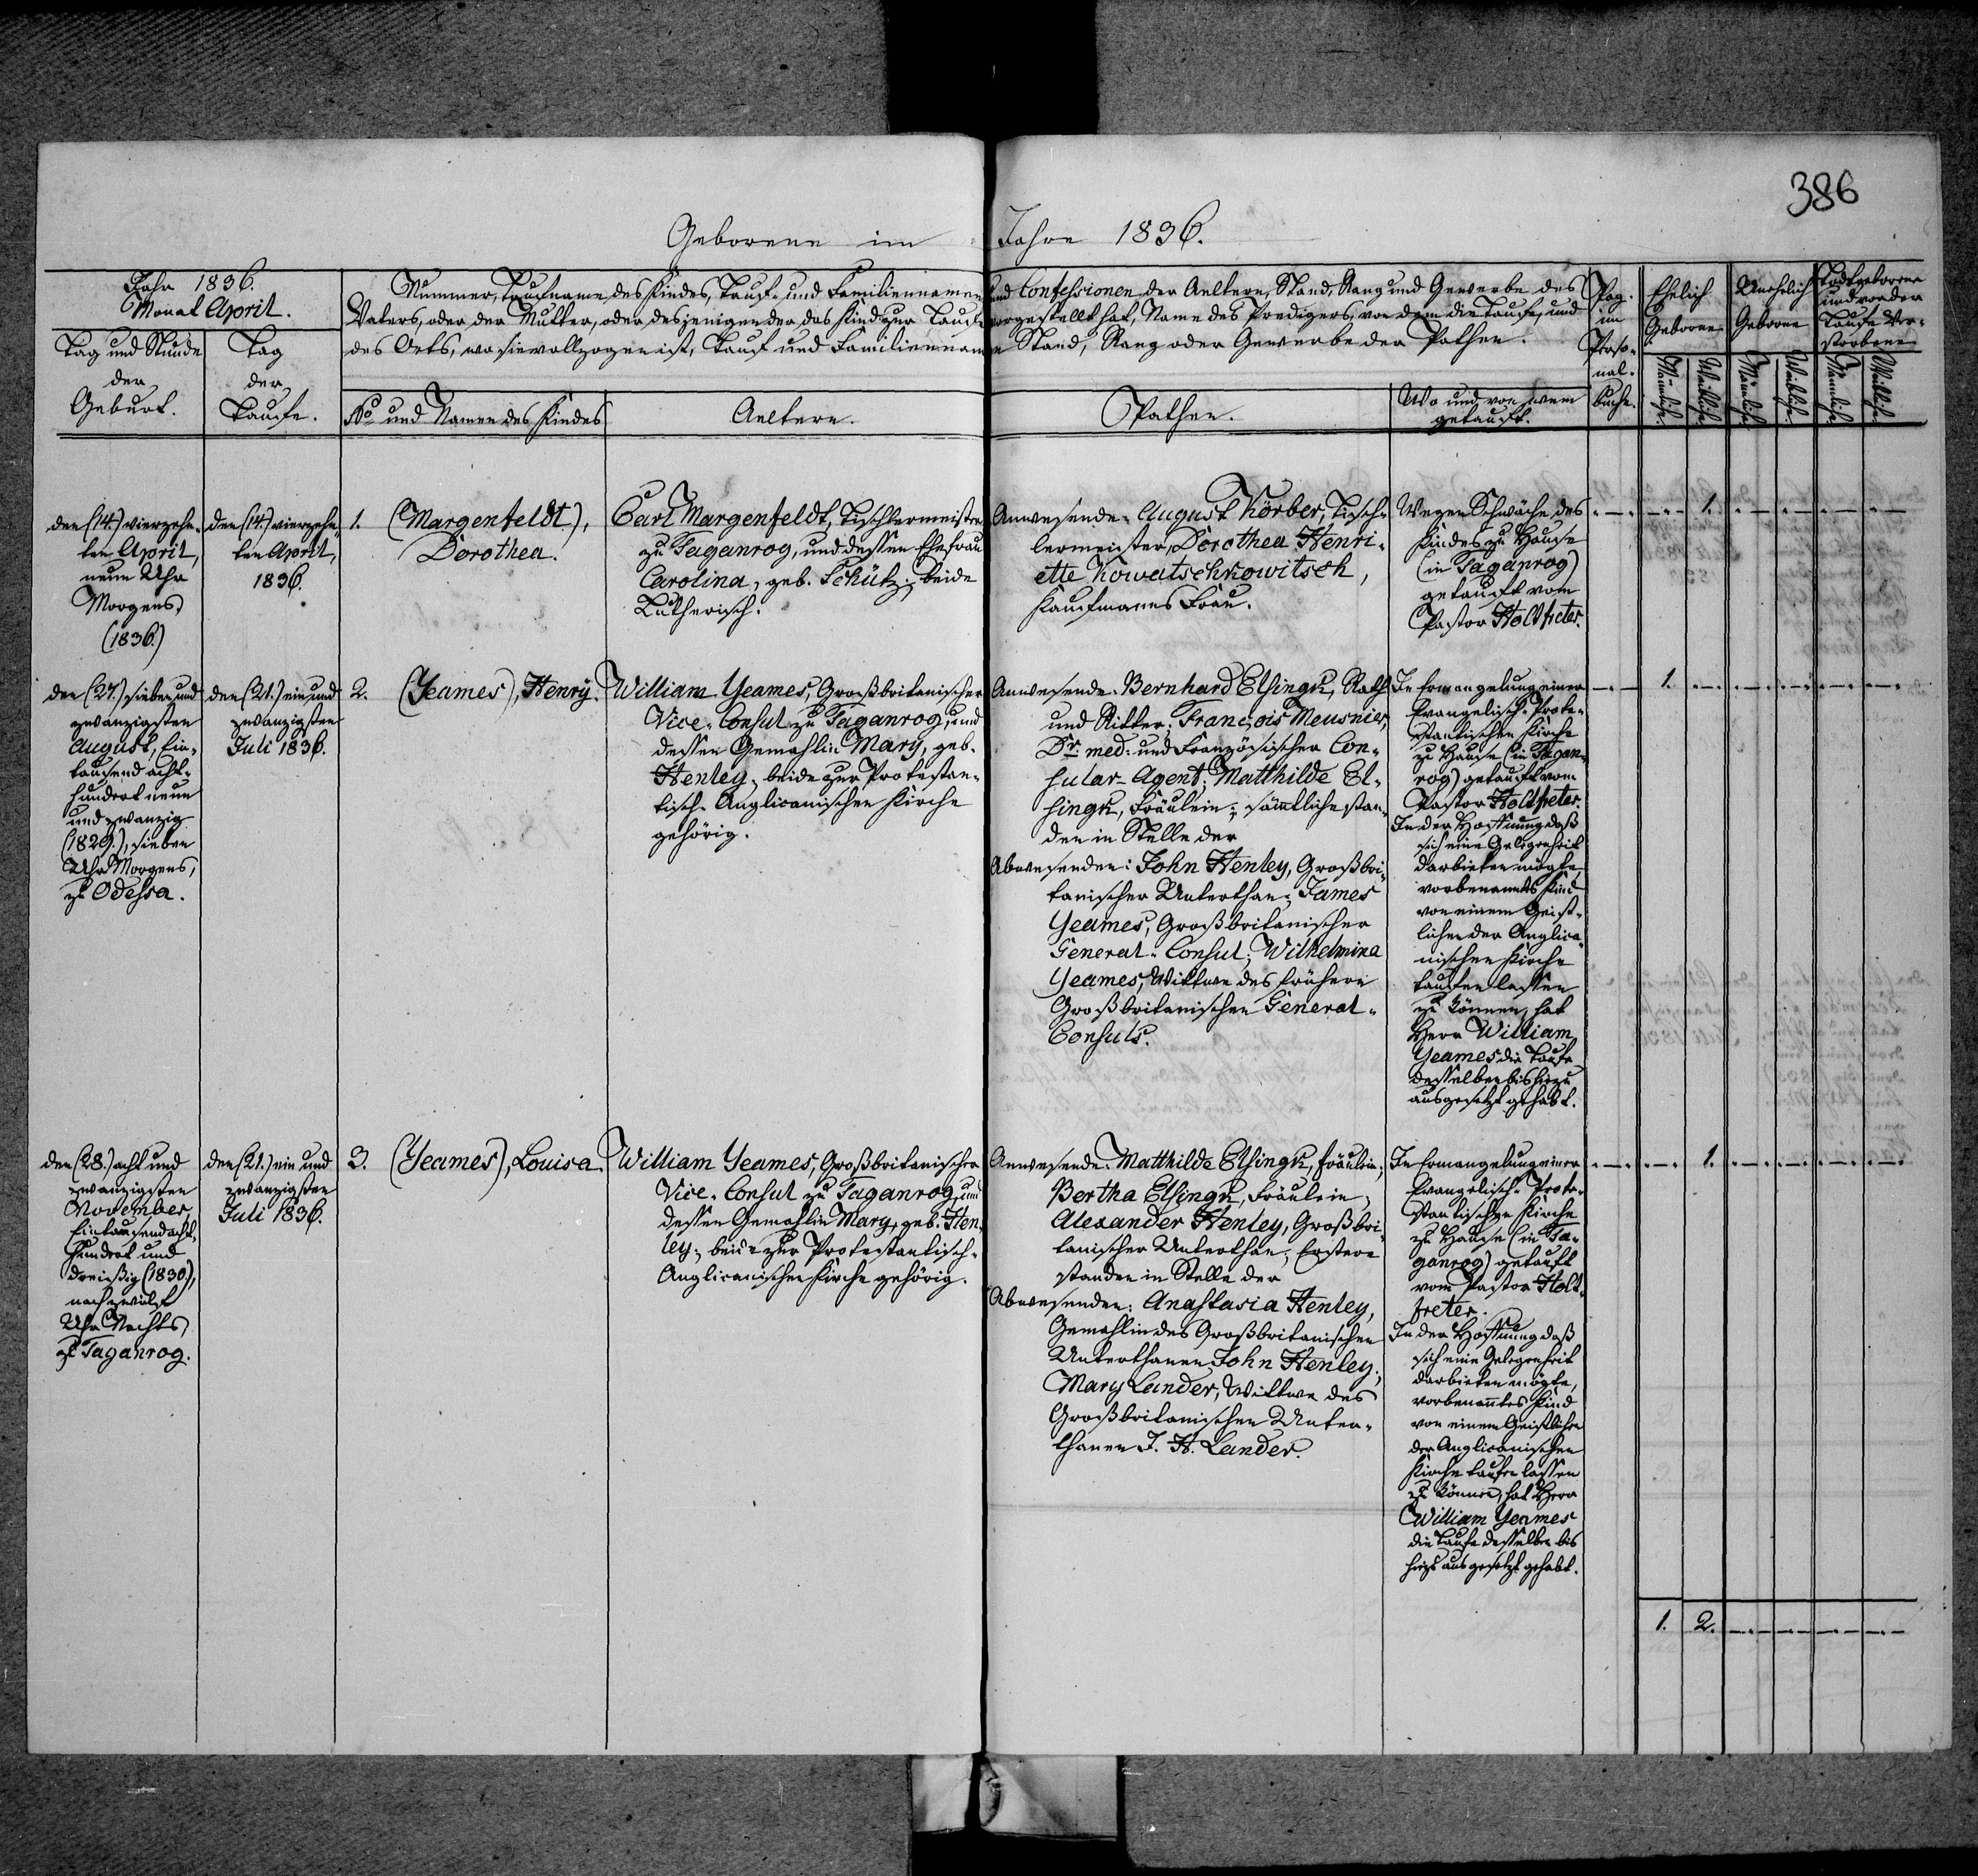 386
Geborene im Jahre 1836.
Jahr 1836.
Monat April.
Tag und Stunde
der
Geburt.
Tag
der
Taufe.
Nummer, Taufname des Kindes, Tauf- und Familiennamen und Confessionen der Aeltern, Stand, Rang und Gewerbe des
Vaters, oder der Mutter, oder desjenigen der das Kind zur Taufe vorgestellt hat, Name des Predigers, von dem die Taufe, und
des Orts, wo sie vollzogen ist, Tauf und Familiennamen Stand, Rang oder Gewerbe der Pathen.
No und Namen des Kindes
Aeltern.
Pathen.
Wo und von wem
getauft.
Pag.
im
Perso-
nal-
buche.
Ehelich
Geborene
Unehelich
Geborene
Todtgeborene
und vor der
Taufe Ver-
storbene
Männliche.
Weibliche.
Männliche.
Weibliche.
Männliche.
Weibliche.
den (14.) vierzehn-
ten April,
neun Uhr
Morgens,
(1836.)
den (14.) vierzehn-
ten April,
1836.
1. (Margenfeldt),
Dorothea.
Carl Margenfeldt, Tischlermeister
zu Taganrog, und dessen Ehefrau
Carolina, geb. Schütz; beide
Lutherisch.
Anwesende: August Körber, Tisch-
lermeister, Dorothea Henri-
ette Kowatschkowitsch,
Kaufmanns Frau.
Wegen Schwäche des
Kindes zu Hause
(in Taganrog)
getauft vom
Pastor Holtfreter.
1.
den (27.) sieben und
zwanzigsten
August, Ein-
tausend acht-
hundert neun
und zwanzig
(1829.), sieben
Uhr Morgens,
zu Odessa.
den (21.) ein und
zwanzigsten
Juli 1836.
2. (Yeames), Henry.
William Yeames, Großbritanischer
Vice-Consul zu Taganrog, und
dessen Gemahlin Mary, geb.
Henley, beide zur Protestan-
tisch-Anglicanischen Kirche
gehörig.
Anwesende: Bernhard Elsingk, Rath
und Ritter; François Meusnier,
Dr. med: und Französischer Con-
sular-Agent; Matthilde El-
singk, Fräulein; sämtliche stan-
den in Stelle der
Abwesenden: John Henley, Großbri-
tanischer Unterthan; James
Yeames, Großbritanischer
General-Consul; Wilhelmina
Yeames, Wittwe des frühern
Großbritanischen General-
Consuls.
In Ermangelung einer
Evangelisch-Prote-
stantischen Kirche
zu Hause (in Tagan-
rog) getauft vom
Pastor Holtfreter.
In der Hoffnung daß
sich eine Gelegenheit
darbieten mögte,
vorbenanntes Kind
von einem Geist-
lichen der Anglica-
nischen Kirche
taufen lassen
zu können, hat
Herr William
Yeames die Taufe
desselben bis hiezu
ausgesetzt gehabt.
1.
den (28.) acht und
zwanzigsten
November,
Eintausend acht-
hundert und
dreißig (1830.),
nach zwölf
Uhr Nachts
zu Taganrog.
den (21.) ein und
zwanzigsten
Juli 1836.
3. (Yeames), Louisa.
William Yeames, Großbritanischer
Vice-Consul zu Taganrog, und
dessen Gemahlin Mary, geb. Hen-
ley; beide zur Protestantisch-
Anglicanischen Kirche gehörig.
Anwesende: Matthilde Elsingk, Fräulein;
Bertha Elsingk, Fräulein;
Alexander Henley, Großbri-
tanischer Unterthan; Erstere
standen in Stelle der
Abwesenden: Anastasia Henley,
Gemahlin des Großbritanischen
Unterthanen John Henley;
Mary Lander, Wittwe des
Großbritanischen Unter-
thanen J. H. Lander.
In Ermangelung einer
Evangelisch-Prote-
stantischen Kirche
zu Hause (in Ta-
ganrog) getauft
vom Pastor Holt-
freter.
In der Hoffnung daß
sich eine Gelegenheit
darbieten mögte,
vorbenanntes Kind
von einem Geistlichen
der Anglicanischen
Kirche taufen lassen
zu können, hat Herr
William Yeames
die Taufe desselben bis
hiezu ausgesetzt gehabt.
1.
1. 2.